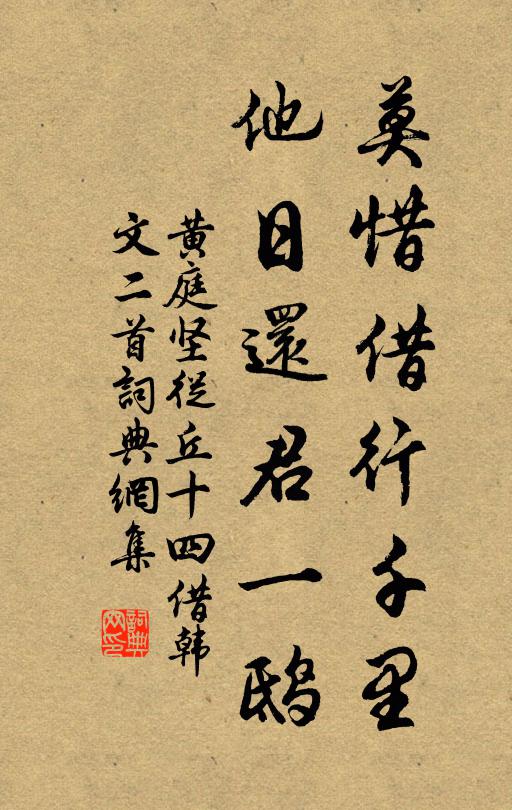 莫惜借行千里
他日還君一鴟
黄庭坚從丘十四借韩
文二首詞典網集
詞典網印